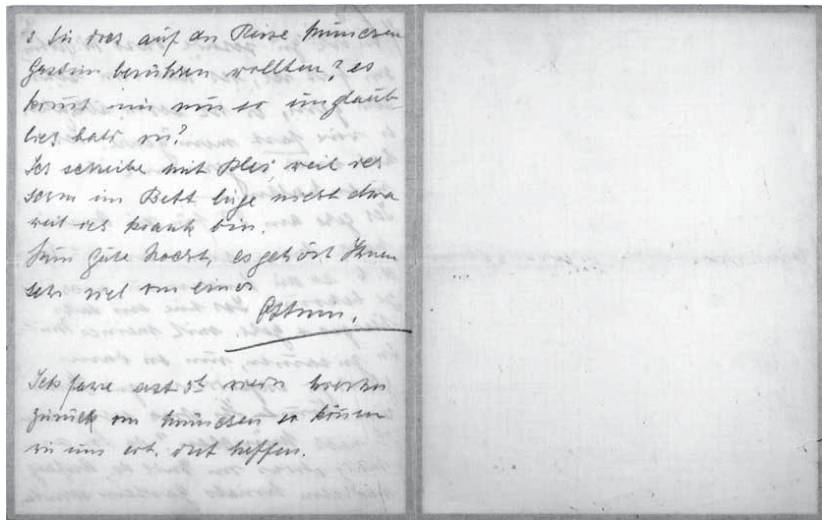 Sie dies auf der Reise München
berühren wollten? es
kommt mir nun so unglaub-
lich bald vor?
Ich schreibe mit Blei, weil ich
schon im Bett liege nicht etwa
weil ich krank bin.
Nun gute Nacht, es gehört Ihnen
sehr viel von einer
Ich fahre erst 5h nach
zurück von München so können
wir uns evt. dort treffen.